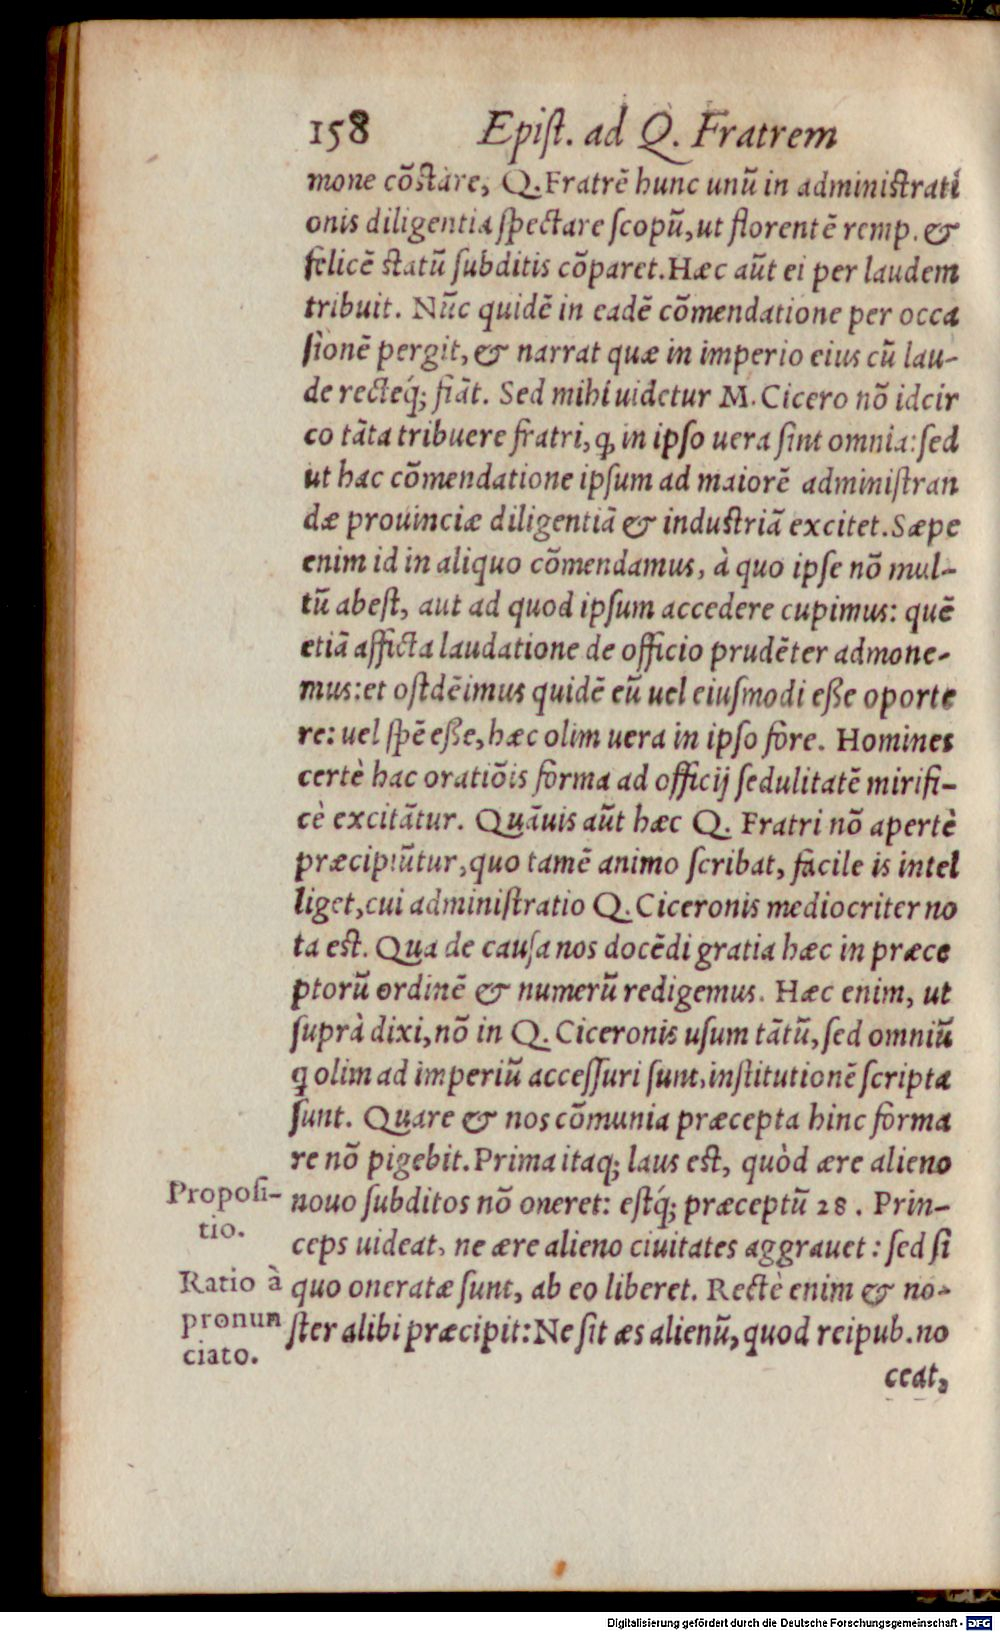 158 Epiſt. ad Q. Fratrem
mone cõſtare, Q. Fratrẽ hunc unũ in adminiſtrati
onis diligentia ſpectare ſcopũ, ut florentẽ remp. &
felicẽ ſtatũ ſubditis cõparet. Hæc aũt ei per laudem
tribuit. Nũc quidẽ in eadẽ cõmendatione per occa
ſionẽ pergit, & narrat quæ in imperio eius cũ lau-
de recteq́; fiãt. Sed mihi uidetur M. Cicero nõ idcir
co tãta tribuere fratri, ꝙ in ipſo uera ſint omnia: ſed
ut hac cõmendatione ipſum ad maiorẽ adminiſtran
dæ prouinciæ diligentiã & induſtriã excitet. Sæpe
enim id in aliquo cõmendamus, à quo ipſe nõ mul-
tũ abeſt, aut ad quod ipſum accedere cupimus: quẽ
etiã afficta laudatione de officio prudẽter admone-
mus: et oſtdẽimus quidẽ eũ uel eiuſmodi eße oporte
re: uel ſpẽ eße, hæc olim uera in ipſo fore. Homines
certè hac oratiõis forma ad officij ſedulitatẽ mirifi-
cè excitãtur. Quãuis aũt hæc Q. Fratri nõ apertè
præcipiũtur, quo tamẽ animo ſcribat, facile is intel
liget, cui adminiſtratio Q. Ciceronis mediocriter no
ta eſt. Qua de cauſa nos docẽdi gratia hæc in præce
ptorũ ordinẽ & numerũ redigemus. Hæc enim, ut
ſuprà dixi, nõ in Q. Ciceronis uſum tãtũ, ſed omniũ
ꝗ olim ad imperiũ acceſſuri ſunt, inſtitutionẽ ſcripta
ſunt. Quare & nos cõmunia præcepta hinc forma
re nõ pigebit. Prima itaq; laus eſt, quòd ære alieno
Propoſi-
tio.
nouo ſubditos nõ oneret: eſtq́; præceptũ 28. Prin-
ceps uideat, ne ære alieno ciuitates aggrauet: ſed ſi
Ratio à
pronun
ciato.
quo oneratæ ſunt, ab eo liberet. Rectè enim & no-
ſter alibi præcipit: Ne ſit æs alienũ, quod reipub. no
ceat,
Digitalisierung gefördert durch die Deutsche Forschungsgemeinschaft - DFG